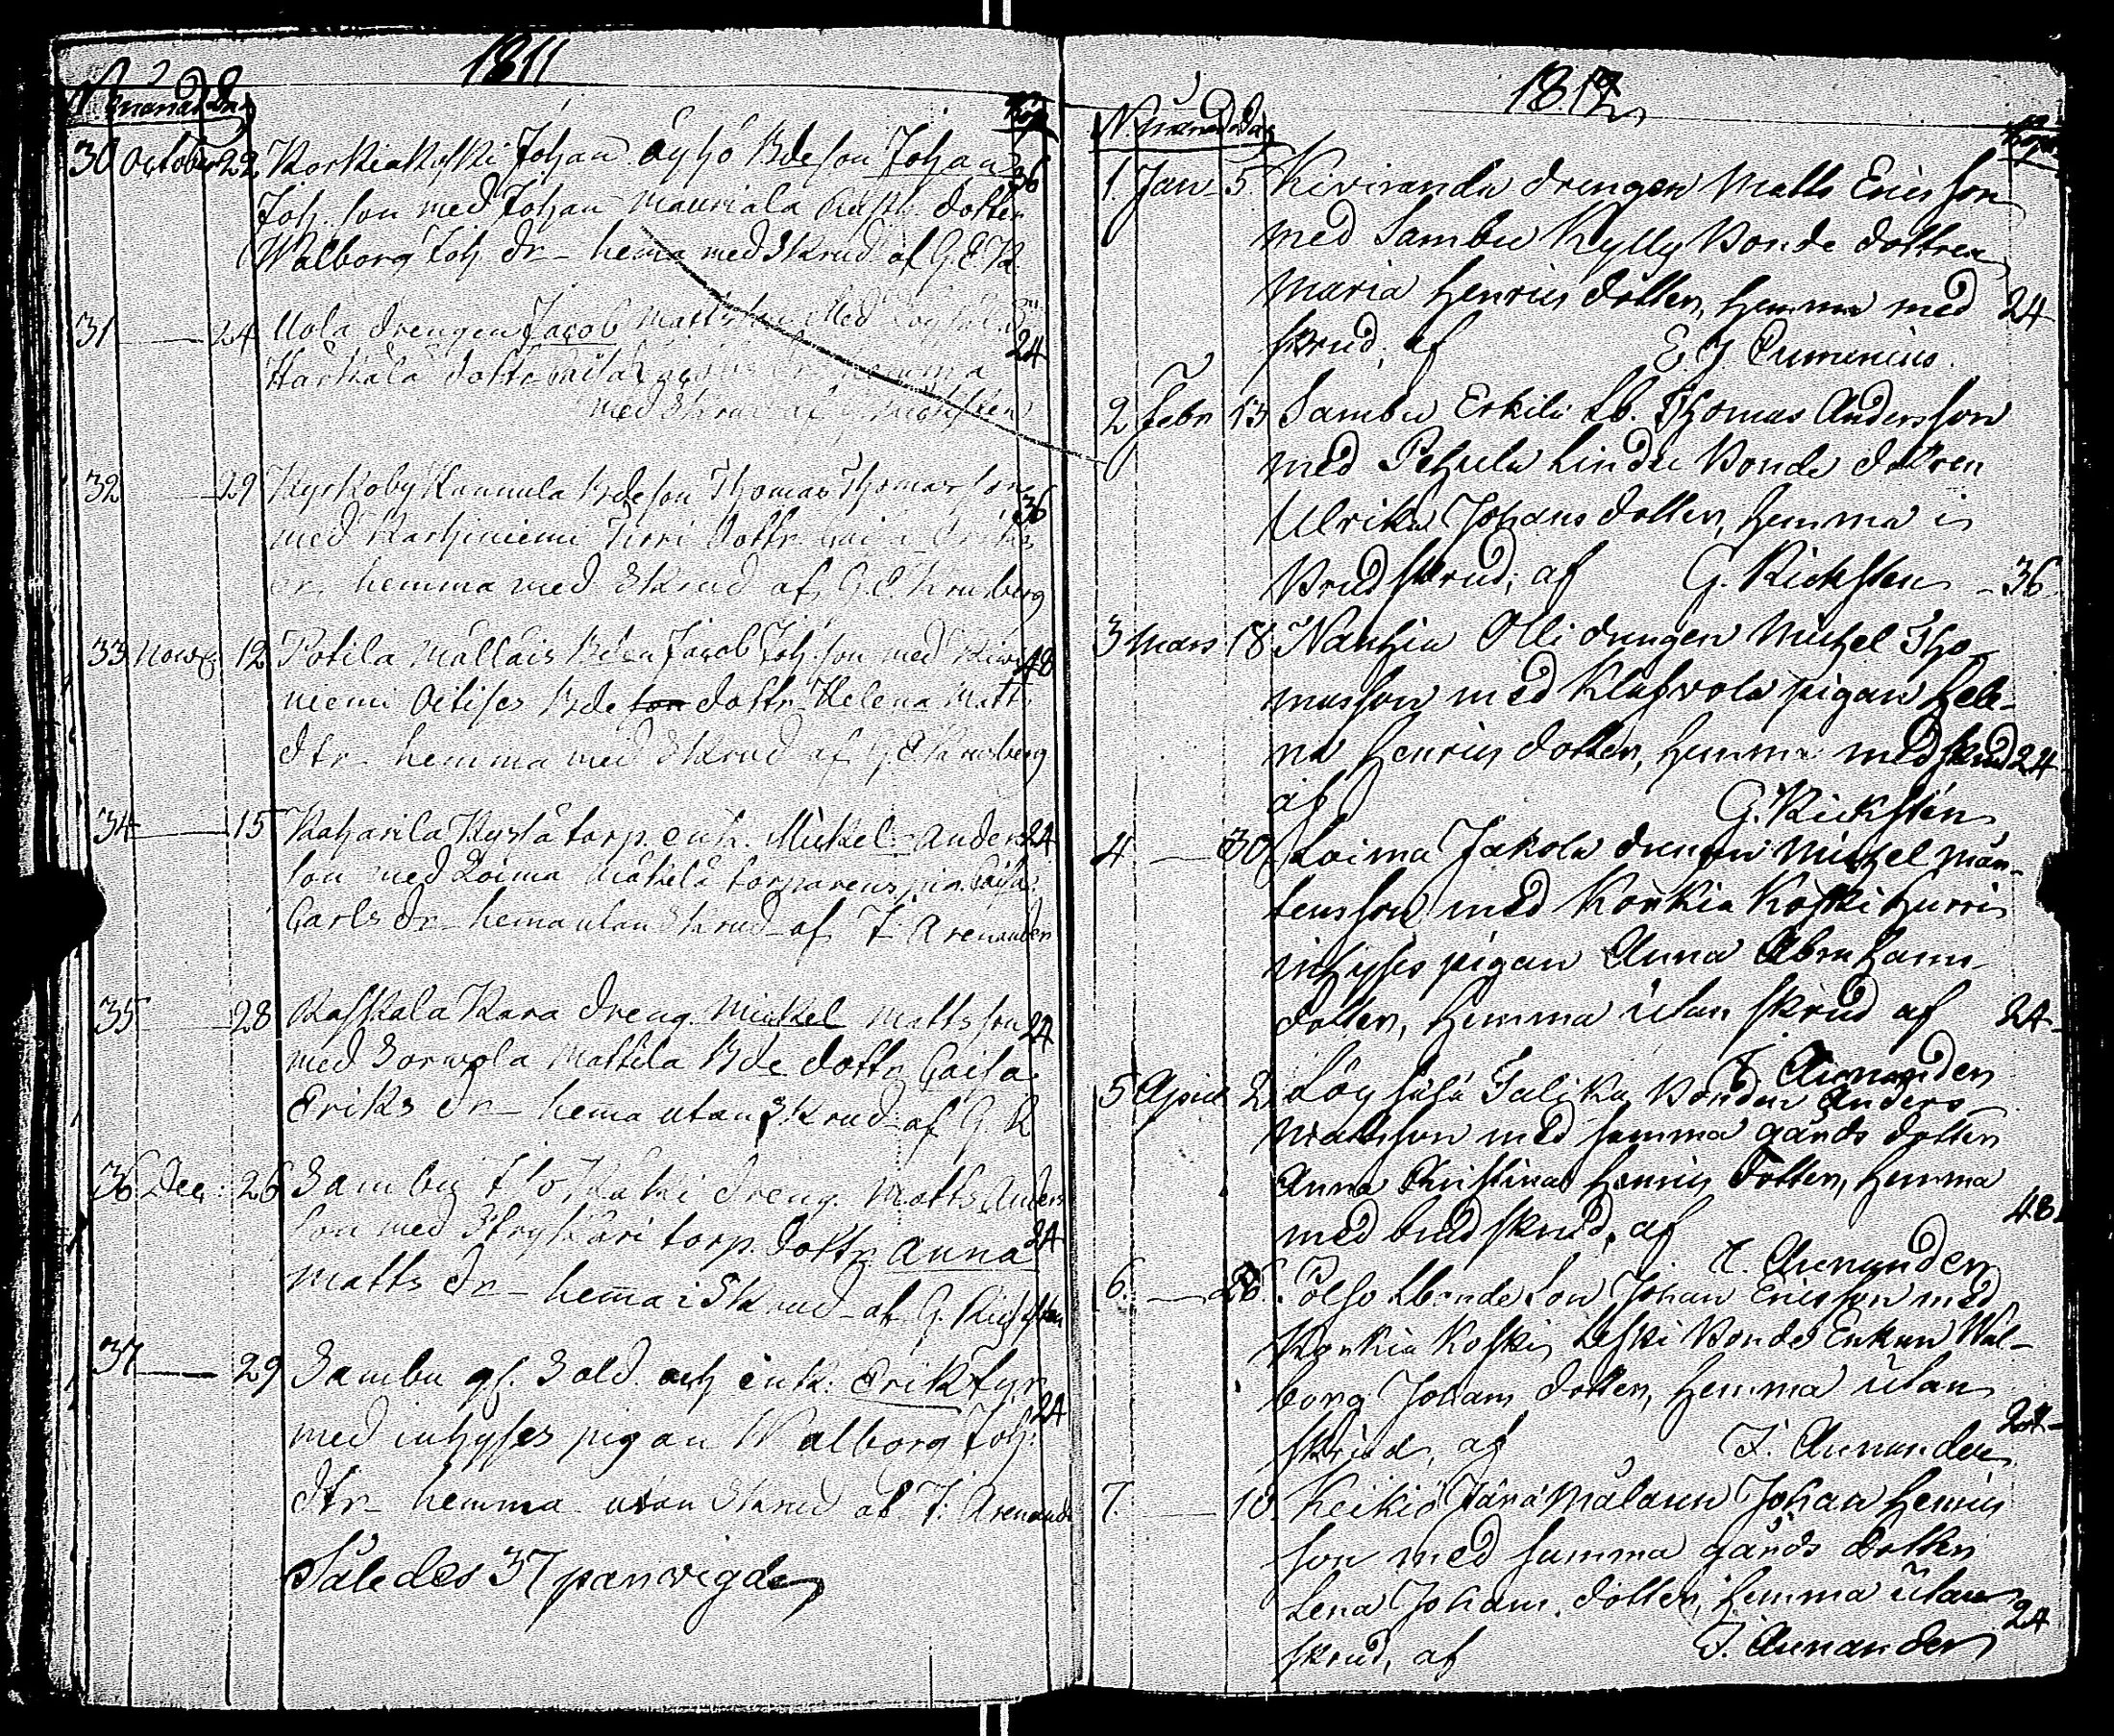 1811
N. månad Dag Kop
30 October 22 Korkiakoski Johan Äyhö Bdeson Johan 36
Joh. son med Johan Mauriala dotter
Walborg Joh. dr – hema med Skrud af G.E.K.
31 — 24 Uola drengen Jacob Matts son med 24
Harkala dottr hemma
med Skrud af G. Rickstén
32 — 29 Kyrkoby Kannula Bdeson Thomas Thomasson 36
med Karhiniemi Pirri dottr Caisa Eriks
dr, hemma med Skrud af G.E. Krusberg
33 Novb 12 Potila Mallais Bden Jacob Joh. son med Kiwi 48
niemi Bde son dottr Helena Matts
dtr – hemma med Skrud af G.E. Krusberg
34 — 15 Kaharila Kyslä torp. enk. Mickel Anders 24
son med Loima Mäkelä torparens pig. Caisa
Carls dr – hema utan Skrud – af F. Arenander
35 — 28 Raskala Kara dreng. Mickel Matts son 24
med Sorwola Mattila Bde dottr Caisa
Eriks dr – hema utan Skrud – af G. R
36 Dec: 26 Sambu dreng. Matts Anders
son med Stryckari torp. dottr Anna 24
Matts dr – hema i Skrud – af G. Rickstén
37 — 29 Sambu gl. Sold. och enk: Erik Fyr 24
med inhyses pigan Walborg Joh:
dtr – hemma utan Skrud af F. Arenander
Således 37 par wigde
1812
N. månad dag Kop.
1. Jan 5. Kiviranda drengen Matts Ericsson
med Sambu Kylly Bonde dottren
Maria Henrics dotter, hemma med 24
skrud, af E. J. Pumenius.
2 Febr 13 Sambu Erkilä Lb. Thomas Andersson
med Pehula Lindu Bonde dottren
Ulrika Johans dotter, hemma i
Brudskrud; af G. Rickstén – 36
3 Mars 18 Nanhia Olli drengen Michel Tho-
masson med Klasvola pigan Hele-
na Henrics dotter, hemma med skrud 24
af G. Rickstén
4 — 30 Loima Jakola drengen Michel Mår-
tensson, med Korkia Koski Hurri
inhyses pigan Anna Abrahams
dotter, hemma utan skrud af 24
F. Arenander
5 April 2. Löysälä Salika Bonden Anders
Mattsson med samma gårds dotter
Anna Christina Henrics dotter, hemma
med brudskrud, af 48.
F. Arenander
6. — 28. Pölso Lbonde Son Johan Ericsson med
Korkia Koski, Leski Bonde Enkan Wal-
borg Johans dotter, hemma utan
skrud, af F. Arenander 24
7. — 10. Keikiö Jära Målaren Johan Henrics
son med samma gårds dotter
Lena Johans. dotter, hemma utan 24
skrud, af F. Arenander